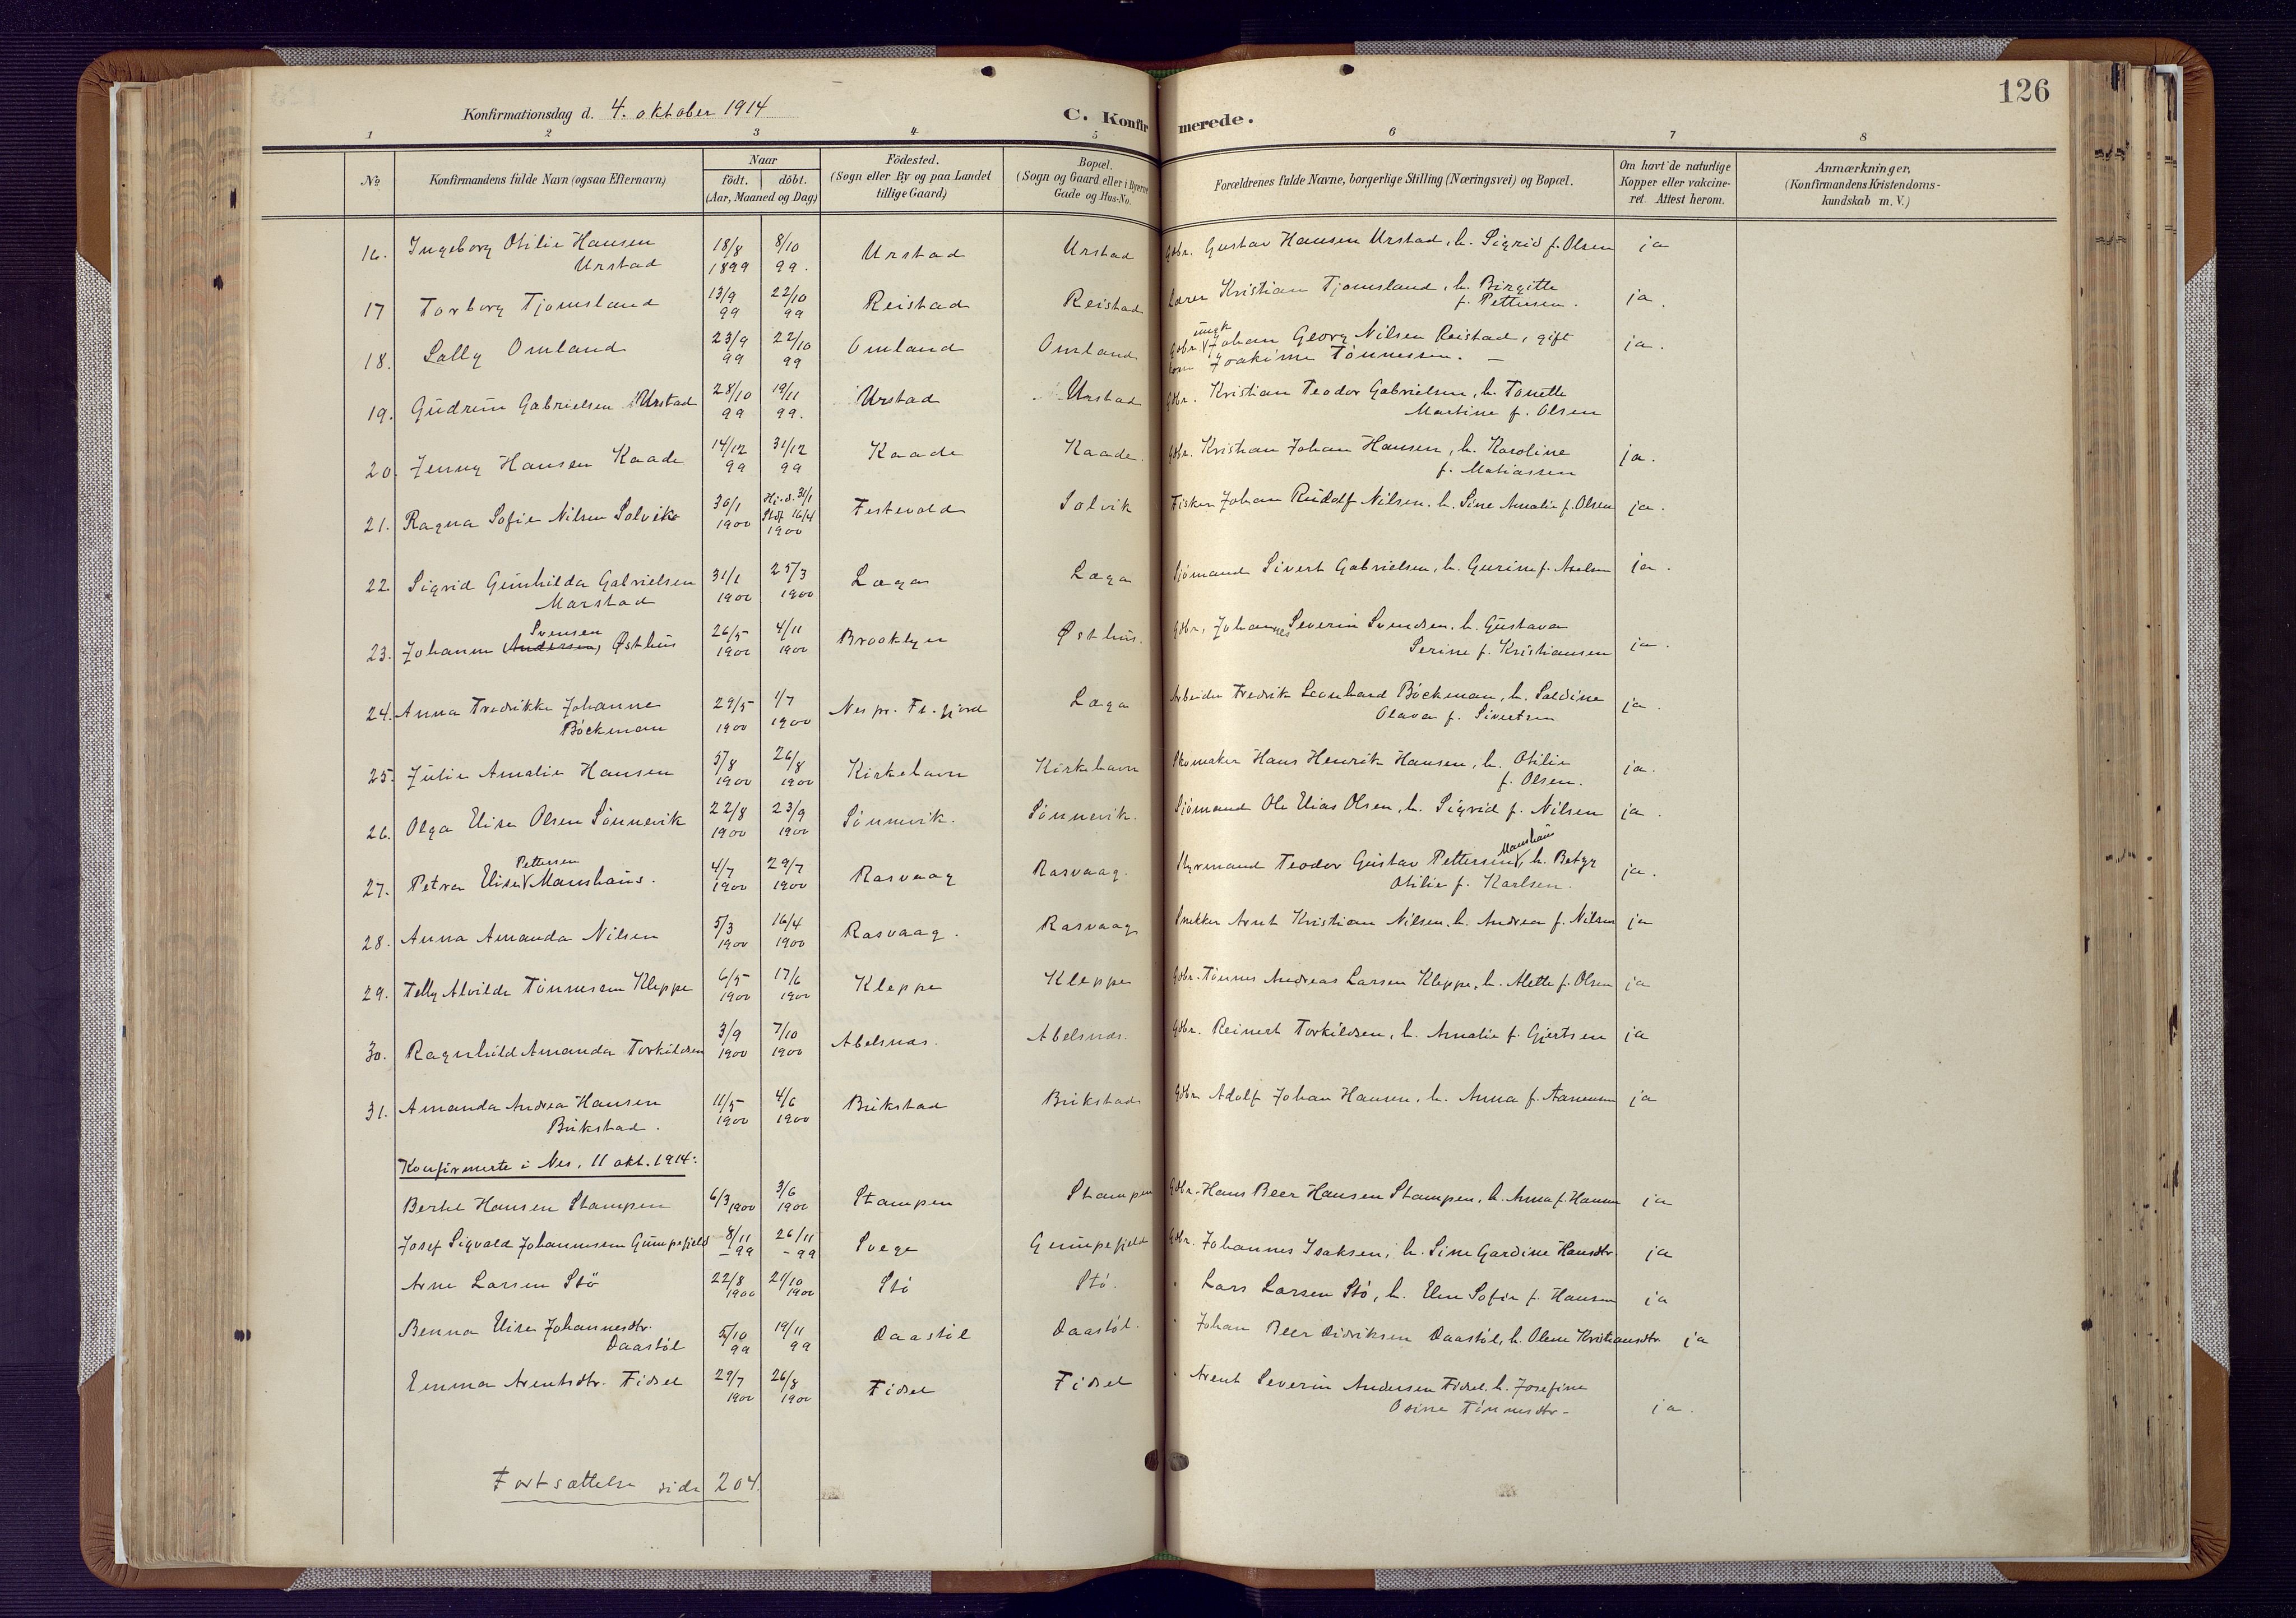 126
Konfirmationsdag d. 4. oktober 1914
C. Konfirmerede.
1 2 3 4 5 6 7 8
No Konfirmandens fulde Navn (ogsaa Efternavn) Naar födt. döbt. (Aar, Maaned og Dag) Födested. (Sogn eller By og paa Landet tillige Gaard) Bopæl. (Sogn og Gaard eller i Byerne Gade og Hus-No. Forældrenes fulde Navne, borgerlige Stilling (Næringsvei) og Bopæl. Om havt de naturlige Kopper eller vakcineret. Attest herom. Anmærkninger. (Konfirmandens Kristendomskundskab m. V.)
16. Ingeborg Otilie Hansen Urstad 18/8 1899 8/10 99. Urstad Urstad Gdbr. Gustav Hansen Urstad, h. Sigrid f. Olsen ja
17 Torborg Tjomsland 13/9 99 22/10 99 Reistad Reistad Lærer Kristian Tjomsland, h. Birgitte f. Pettersen. ja.
18. Sally Omland 23/9 99 22/10 99 Omland Omland Gdbr. ungk Johan Georg Nilsen Reistad, gift Joakime Tönnessen. ja.
19. Gudrun Gabrielsen Urstad 28/10 99 19/11 99. Urstad Urstad Gdbr. Kristian Teodor Gabrielsen, h. Tonette Martine f. Olsen
20. Jenny Hansen Kaade 14/12 99 31/12 99 Kaade Kaade. Gdbr. Kristian Johan Hansen, h. Karoline f. Matiassen ja.
21. Ragna Sofie Nilsen Solvik 30/1 1900 Hj.d. 31/1 Stdf. 16/4 1900 Festevold Solvik Fisker Johan Rudolf Nilsen. h. Sine Amalie f. Olsen ja.
22. Sigrid Gunhilda Gabrielsen Marstad 31/1 1900 25/3 1900 Læga Læga Sjömand Sivert Gabrielsen, h. Gurine f. Axelsen ja.
23. Johanne Svensen (Andersen) Østhus 26/5 1900 4/11 1900 Brooklyn Østhus. Gdbr. Johannes Severin Svendsen. h. Gustava Serine f. Kristiansen ja.
24. Anna Fredrikke Johanne Böckman 29/5 1900 4/7 1900 Nes pr. Fl.fjord Læga Arbeider Fredrik Leonhard Böckman, h. Saldine Olava f. Sivertsen ja.
25. Julie Amalie Hansen 5/8 1900 26/8 1900 Kirkehavn Kirkehavn Skomaker Hans Henrik Hansen, h. Otilie f. Olsen. ja.
26. Olga Elise Olsen Sönnevik 22/8 1900 23/9 1900 Sönnevik. Sönnevik. Sjömand Ole Elias Olsen, h. Sigrid f. Nilsen ja.
27. Petra Elise Pettersen Manshaus. 4/7 1900 29/7 1900 Rasvaag Rasvaag. Styrmand Teodor Gustav Pettersen Manshaus, h. Betzy Otilie f. Karlsen. ja.
28. Anna Amanda Nilsen 5/3 1900 16/4 1900 Rasvaag. Rasvaag Snekker Arnt Kristian Nilsen. h. Andrea f. Nilsen ja
29. Telly Alvilde Tönnesen Kleppe 6/5 1900 17/6 1900 Kleppe Kleppe Gdbr. Tönnes Andreas Larsen Kleppe, h. Alette f. Olsen ja
30. Ragnhild Amanda Torkildsen 3/9 1900 7/10 1900 Abelsnæs. Abelsnæs. Gdbr. Reinert Torkildsen, h. Amalie f. Gjertsen ja
31. Amanda Andrea Hansen Bukstad. 11/5 1900 4/6 1900 Bukstad Bukstad Gdbr. Adolf Johan Hansen, h. Anna f. Aanensen ja
Konfirmerte i Nes, 11 okt. 1914:
Bertel Hansen Stampen 6/3 1900 3/6 1900 Stampen Stampen Gdbr. Hans Beer Hansen Stampen, h. Anna f. Hansen ja
Josef Sigvald Johannesen Gumpefjeld 8/11 -99 26/11 -99 Svege Gumpefjeld Gdbr. Johannes Isaksen, h. Sine Gardine Hansdtr. ja
Arne Larsen Stö 22/8 1900 21/10 1900 Stö Stö. " Lars Larsen Stö, h. Elen Sofie f. Hansen ja
Benna Elise Johannesdtr. Daastöl 5/10 99 19/11 99 Daastöl Daastöl. " Johan Beer Didriksen Daastöl, h. Olene Kristiansdtr. ja
Emma Arentsdtr. Fidsel 29/7 1900 26/8 1900 Fidsel Fidsel " Arent Severin Andersen Fidsel, h. Josefine Osine Tönnesdtr. ja.
Fortsættelse side 204.